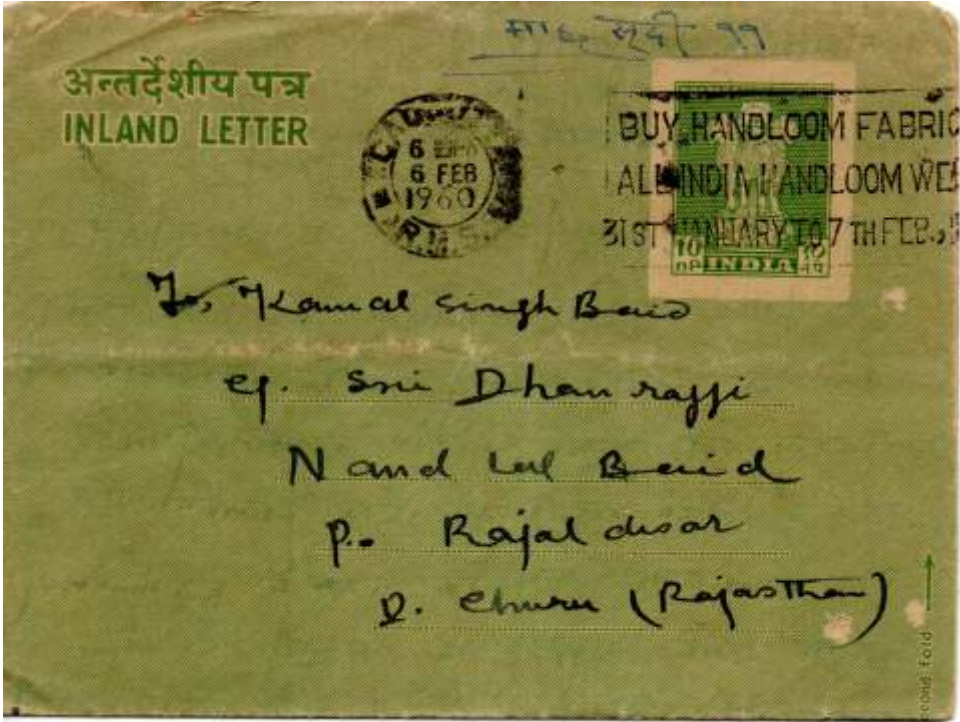 माह सुदी ११
अन्तर्देशीय पत्र
INLAND LETTER
6 FEB
1960
R.M.S.
BUY HANDLOOM FABRIC
ALL INDIA HANDLOOM WE
31ST JANUARY TO 7TH FEB.,
10 10
nP INDIA नप
To, Kamal Singh Baid
c/. Sri Dhanrajji
Nand Lal Baid
P. Rajaldisar
D. Churu (Rajasthan)
cond fold